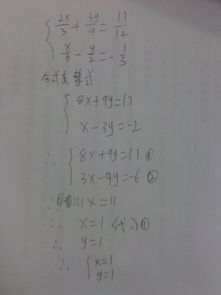 2x/3 + 3y/4 = 17/12
x/6 - y/2 = -1/3
8x+9y=17
x-3y=-2
∴ 8x+9y=17 ①
3x-9y=-6 ②
11x=11
∴ x=1 ①
∴ y=1
∴ x=1
y=1